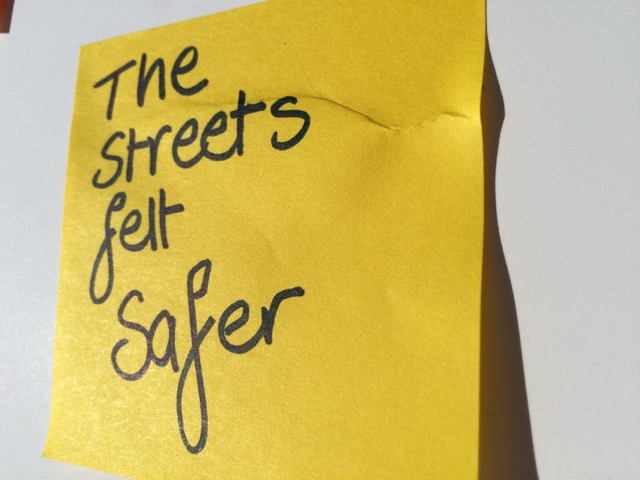 The
Streets
felt
Safer